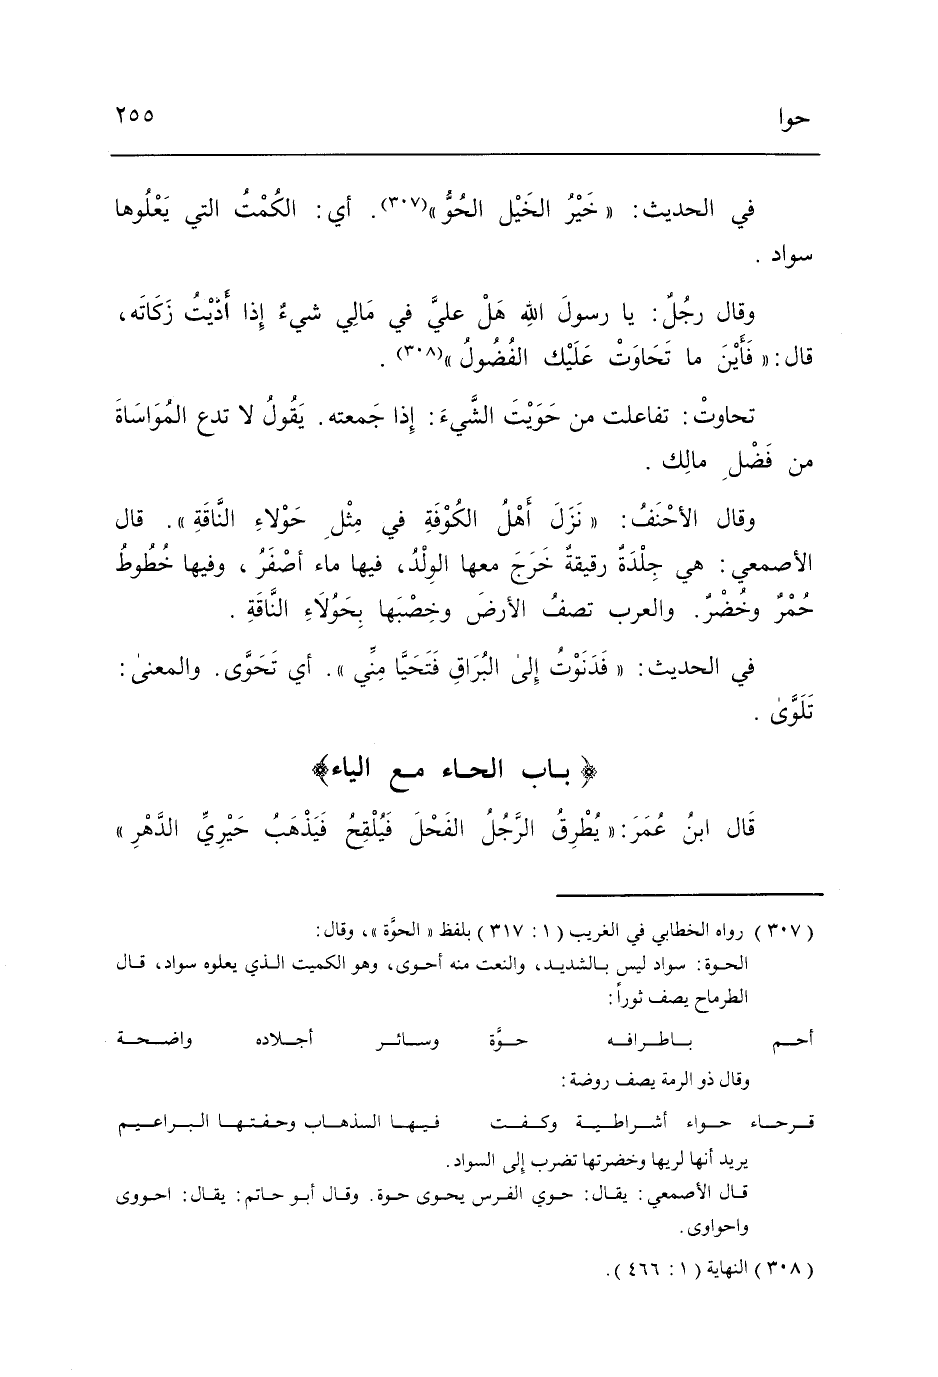 حوا ٢٥٥
في الحديث: « خَيْرُ الخَيْل الحُوُّ »(٣٠٧). أي: الكُمْتُ التي يَعْلُوها
سواد .
وقال رجُلٌ: يا رسولَ الله هَلْ عليَّ في مَالِي شيءٌ إذا أَدَّيْتُ زَكَاتَه،
قال: « فَأَيْنَ ما تَحَاوَتْ عَلَيْك الفُضُولُ »(٣٠٨) .
تحاوتْ: تفاعلت من حَوَيْتَ الشَّيءَ: إذا جَمعته. يَقُولُ لا تدع المُوَاسَاةَ
من فَضْلِ مالِك .
وقال الأحْنَفُ: « نَزَلَ أَهْلُ الكُوْفَةِ في مِثْلِ حَوْلاءِ النَّاقَةِ ». قال
الأصمعي: هي جِلْدَةٌ رقيقةٌ خَرَجَ معها الوِلْدُ، فيها ماء أصْفَرُ ، وفيها خُطُوطُ
حُمْرٌ وخُضْرٌ. والعرب تصفُ الأرضَ وخِصْبَها بِحَوُلَاءِ النَّاقَةِ .
في الحديث: « فَدَنَوْتُ إلىٰ البُرَاقِ فَتَحَيَّا مِنِّي ». أي تَحَوَّى. والمعنىٰ:
تَلَوَّىٰ .
﴿ باب الحاء مع الياء﴾
قَال ابنُ عُمَرَ: « يُطْرِقُ الرَّجُلُ الفَحْلَ فَيُلْقِحُ فَيَذْهَبُ حَيْرِيِّ الدَّهْرِ »
(٣٠٧) رواه الخطابي في الغريب (١: ٣١٧) بلفظ « الحوَّة »، وقال:
الحوة: سواد ليس بالشديد، والنعت منه أحوى، وهو الكميت الذي يعلوه سواد، قال
الطرماح يصف ثوراً:
أحم باطرافه حوَّة وسائر أجلاده واضحة
وقال ذو الرمة يصف روضة:
قرحاء حواء أشراطية وكفت فيها الذهاب وحفتها البراعيم
يريد أنها لريها وخضرتها تضرب إلى السواد.
قال الأصمعي: يقال: حوي الفرس يحوى حوة. وقال أبو حاتم: يقال: احووى
واحواوى.
(٣٠٨) النهاية (١: ٤٦٦).